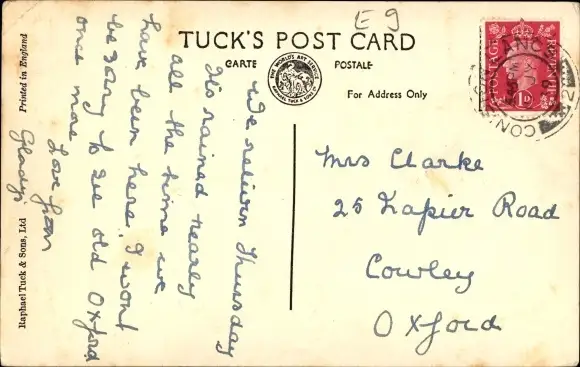 E 9
TUCK'S POST CARD
CARTE POSTALE
THE WORLD'S ART SERVICE
RAPHAEL TUCK & SONS LTD
For Address Only
POSTAGE REVENUE
1D
We return Thursday
It's rained nearly
all the time we
have been here, I wont
be sorry to see old Oxford
once more
Love from
Gladys
Mrs Clarke
25 Napier Road
Cowley
Oxford
Printed in England
Raphael Tuck & Sons, Ltd